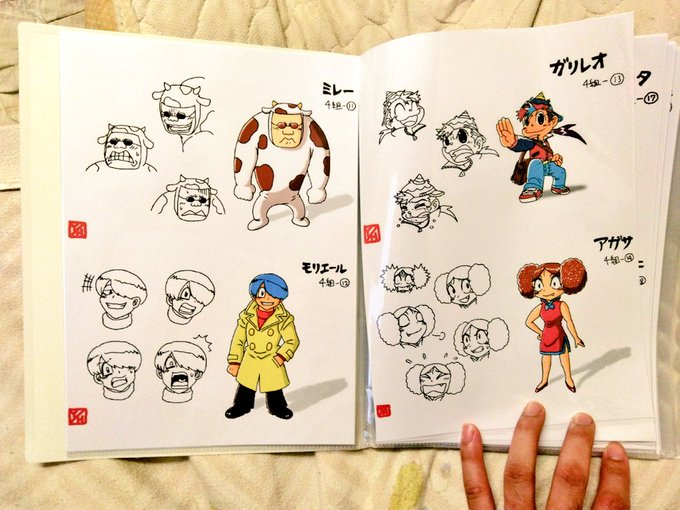 ミレー
4組-⑪
モリエール
4組-⑫
ガリレオ
4組-⑬
アガサ
4組-⑭
タ
-⑰
ニ